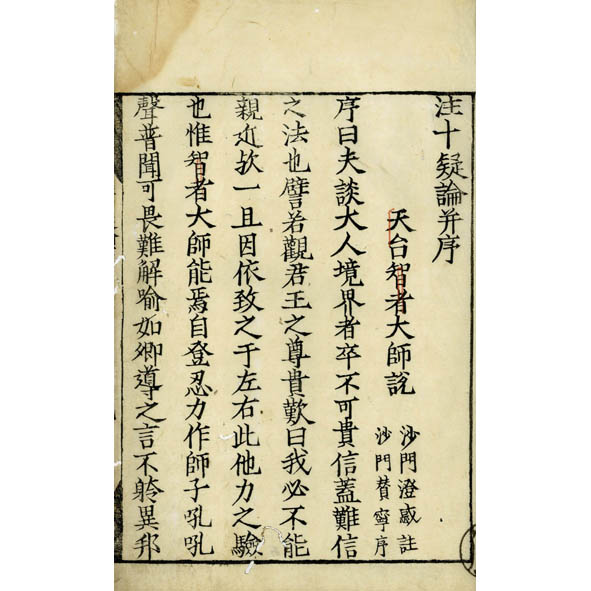 注十疑論并序
天台智者大師說
沙門澄彧註
沙門賛寧序
序曰夫談大人境界者卒不可貴信蓋難信
之法也譬若觀君王之尊貴歎曰我必不能
親近欤一旦因依致之于左右此他力之驗
也惟智者大師能焉自登忍力作師子吼吼
聲普聞可畏難解喻如卿導之言不
異邦